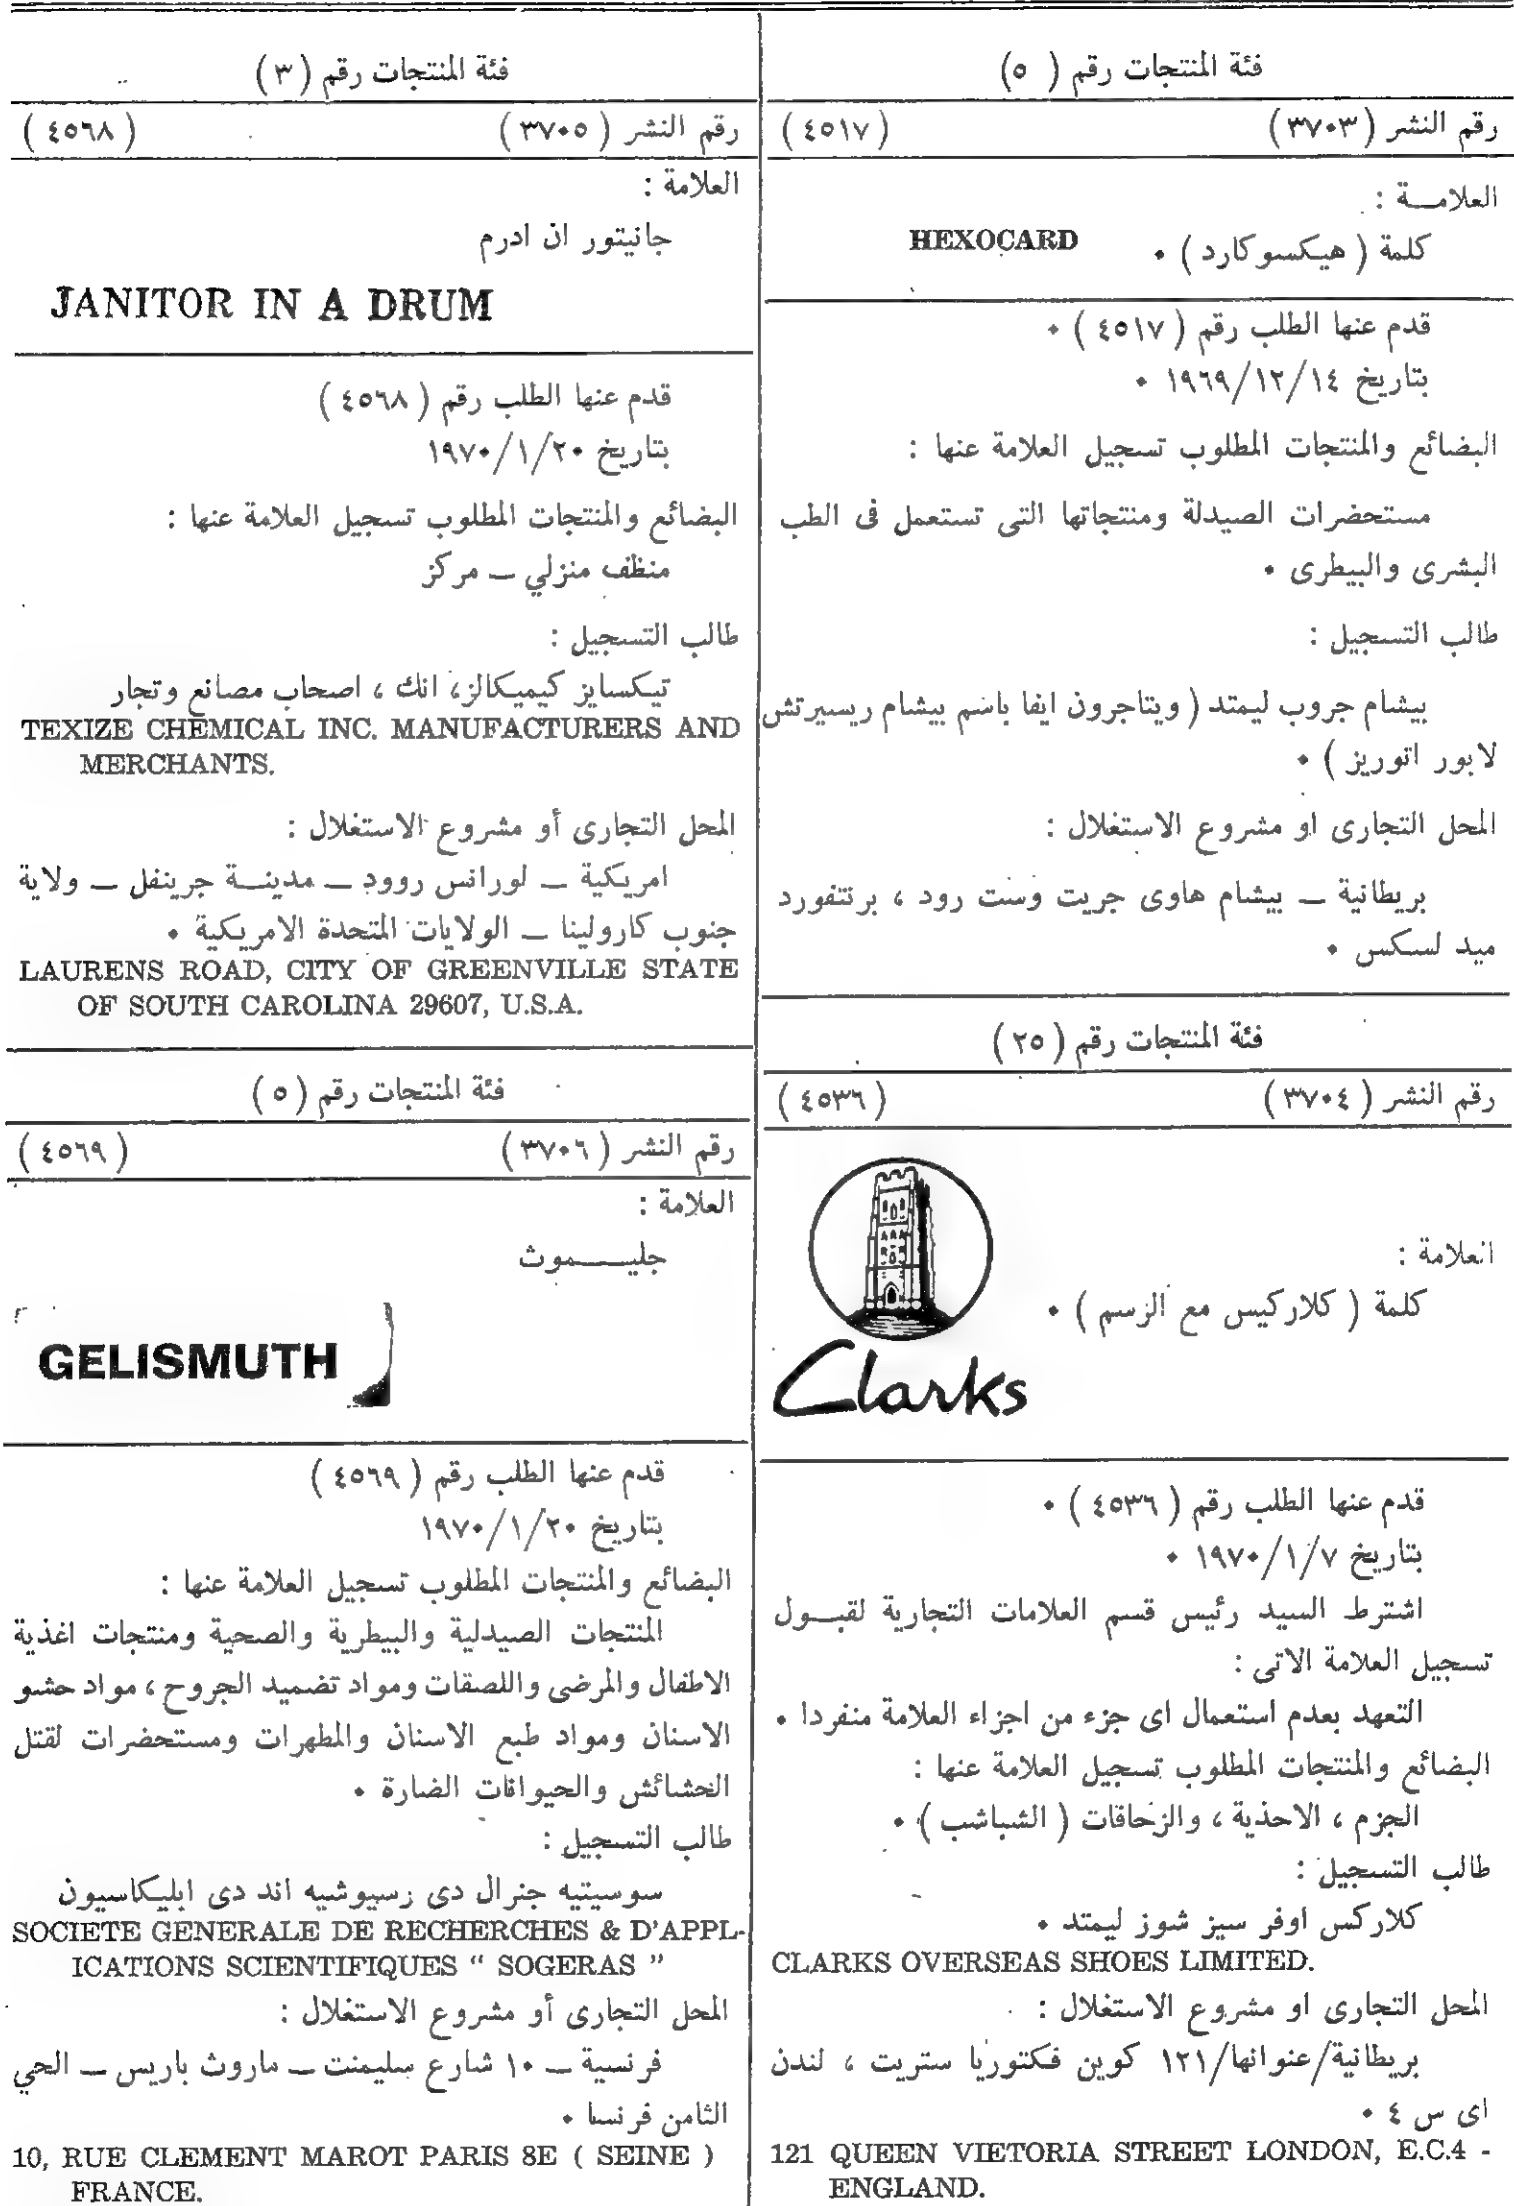 فئة المنتجات رقم ( ٥ )
رقم النشر ( ٣٧٠٣ ) ( ٤٥١٧ )
العلامـــة :
كلمة ( هيكسوكارد ) . HEXOCARD
قدم عنها الطلب رقم ( ٤٥١٧ ) .
بتاريخ ١٩٦٩/١٢/١٤ .
البضائع والمنتجات المطلوب تسجيل العلامة عنها :
مستحضرات الصيدلة ومنتجاتها التى تستعمل فى الطب
البشرى والبيطرى .
طالب التسجيل :
بيشام جروب ليمتد ( ويتاجرون ايفا باسم بيشام ريسيرتش
لابور اتوريز ) .
المحل التجارى او مشروع الاستغلال :
بريطانية ــ بيشام هاوى جريت وست رود ، برنتفورد
ميد لسكس .
فئة المنتجات رقم ( ٢٥ )
رقم النشر ( ٣٧٠٤ ) ( ٤٥٣٦ )
العلامة :
كلمة ( كلاركيس مع الرسم ) .
Clarks
قدم عنها الطلب رقم ( ٤٥٣٦ ) .
بتاريخ ١٩٧٠/١/٧ .
اشترط السيد رئيس قسم العلامات التجارية لقبـــول
تسجيل العلامة الاتى :
التعهد بعدم استعمال اى جزء من اجزاء العلامة منفردا .
البضائع والمنتجات المطلوب تسجيل العلامة عنها :
الجزم ، الاحذية ، والزحافات ( الشباشب ) .
طالب التسجيل :
كلاركس اوفر سيز شوز ليمتد .
CLARKS OVERSEAS SHOES LIMITED.
المحل التجارى او مشروع الاستغلال :
بريطانية/عنوانها/١٢١ كوين فكتوريا ستريت ، لندن
اى س ٤ .
121 QUEEN VIETORIA STREET LONDON, E.C.4 -
ENGLAND.
فئة المنتجات رقم ( ٣ )
رقم النشر ( ٣٧٠٥ ) ( ٤٥٦٨ )
العلامة :
جانيتور ان ادرم
JANITOR IN A DRUM
قدم عنها الطلب رقم ( ٤٥٦٨ )
بتاريخ ١٩٧٠/١/٢٠
البضائع والمنتجات المطلوب تسجيل العلامة عنها :
منظف منزلي ــ مركز
طالب التسجيل :
تيكسايز كيميكالز، انك ، اصحاب مصانع وتجار
TEXIZE CHEMICAL INC. MANUFACTURERS AND
MERCHANTS.
المحل التجارى أو مشروع الاستغلال :
امريكية ــ لورانس روود ــ مدينـــة جرينفل ــ ولاية
جنوب كارولينا ــ الولايات المتحدة الامريكية .
LAURENS ROAD, CITY OF GREENVILLE STATE
OF SOUTH CAROLINA 29607, U.S.A.
فئة المنتجات رقم ( ٥ )
رقم النشر ( ٣٧٠٦ ) ( ٤٥٦٩ )
العلامة :
جليـــــموث
GELISMUTH
قدم عنها الطلب رقم ( ٤٥٦٩ )
بتاريخ ١٩٧٠/١/٢٠
البضائع والمنتجات المطلوب تسجيل العلامة عنها :
المنتجات الصيدلية والبيطرية والصحية ومنتجات اغذية
الاطفال والمرضى واللصقات ومواد تضميد الجروح ، مواد حشو
الاسنان ومواد طبع الاسنان والمطهرات ومستحضرات لقتل
الحشائش والحيوانات الضارة .
طالب التسجيل :
سوسيتيه جنرال دى رسيوشيه اند دى ابليكاسيون
SOCIETE GENERALE DE RECHERCHES & D'APPL-
ICATIONS SCIENTIFIQUES " SOGERAS "
المحل التجارى أو مشروع الاستغلال :
فرنسية ــ ١٠ شارع سليمنت ــ ماروث باريس ــ الحي
الثامن فرنسا .
10, RUE CLEMENT MAROT PARIS 8E ( SEINE )
FRANCE.